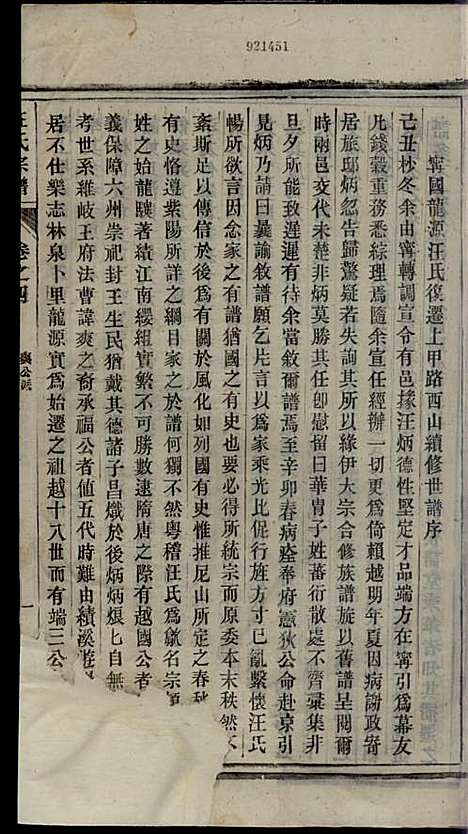 921451
寧國龍源汪氏復遷上甲路西山續修世譜序
己丑杪冬余由寧轉調宣令有邑掾汪炳德性堅定才品端方在寧引爲幕友
凡錢穀重務悉綜理焉隨余宣任經辦一切更爲倚賴越明年夏因病謝政寄
居旅邸炳忽告歸驚疑若失詢其所以緣伊大宗合修族譜旋以舊譜呈閱爾
時兩邑交代未楚非炳莫勝其任卽慰留曰華胄子姓蕃衍散處不齊彙集非
旦夕所能致遲遲有待余當敘爾譜焉至辛卯春病痊奉府憲狄公命赴京引
見炳乃請曰曩諭敘譜願乞片言以爲家乘光比促行旌方寸已亂繫懷汪氏
暢所欲言因念家之有譜猶國之有史也要必得所統宗而原委本末秩然不
紊斯足以傳信於後爲有關於風化如列國有史惟推尼山所定之春秋
有史恪遵紫陽所詳之綱目家之於譜何獨不然粵稽汪氏爲歙名宗
姓之始龍驤著績江南纓組實繁不可勝數逮隋唐之際有越國公者
義保障六州崇祀封王生民猶戴其德諸子昌熾於後炳炳烺匕自無
考世系維岐王府法曹諱爽之裔承福公者值五代時難由績溪
居不仕樂志林泉卜里龍源實爲始遷之祖越十八世而有端三公
汪氏宗譜
卷之四
爽公派
一